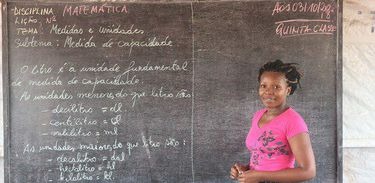 DISCIPLINA MATEMÁTICA
LIÇÃO Nº
TEMA: Medidas e unidades
Subtema: Medida de capacidade
O litro é a unidade fundamental
de medida de capacidade
As unidades menores do que litro são:
- decilitro = dl
- centilitro = cl
- mililitro = ml
As unidades maiores do que litro são:
- decalitro = dal
- hectolitro = hl
- kilolitro = kl
Aos 03/10/18
QUINTA CLASSE